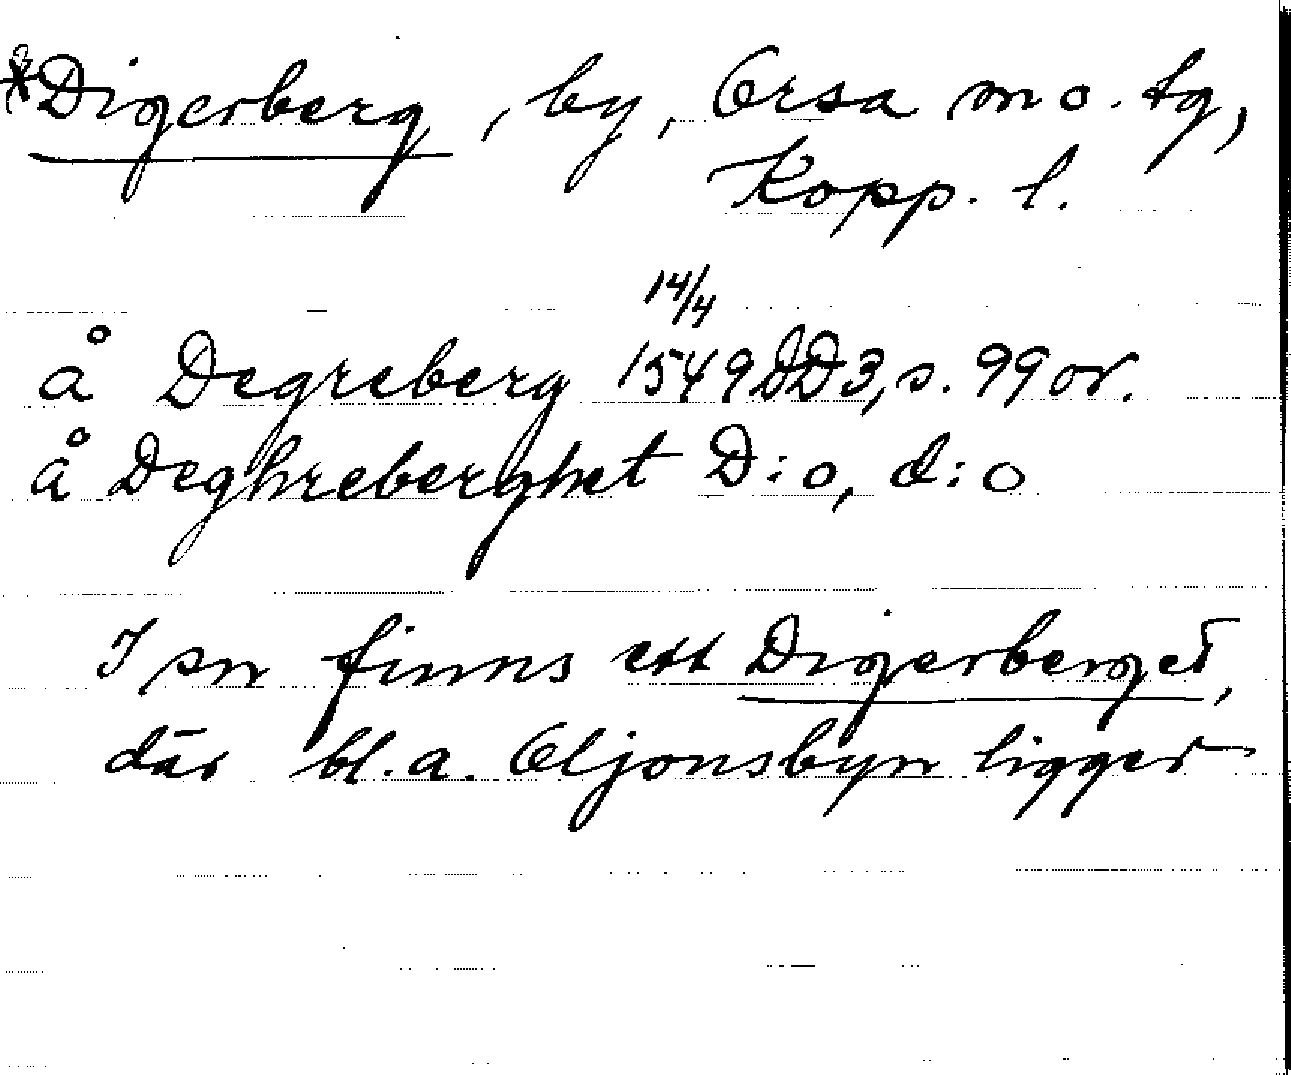 *Digerberg, by, Orsa sn o. tg,
Kopp. l.
14/4
å Degreberg 1549 DD3, s. 99 or.
å Deghreberghet D:o, d:o
I sn finns ett Digerberget,
där bl. a. Oljonsbyn ligger